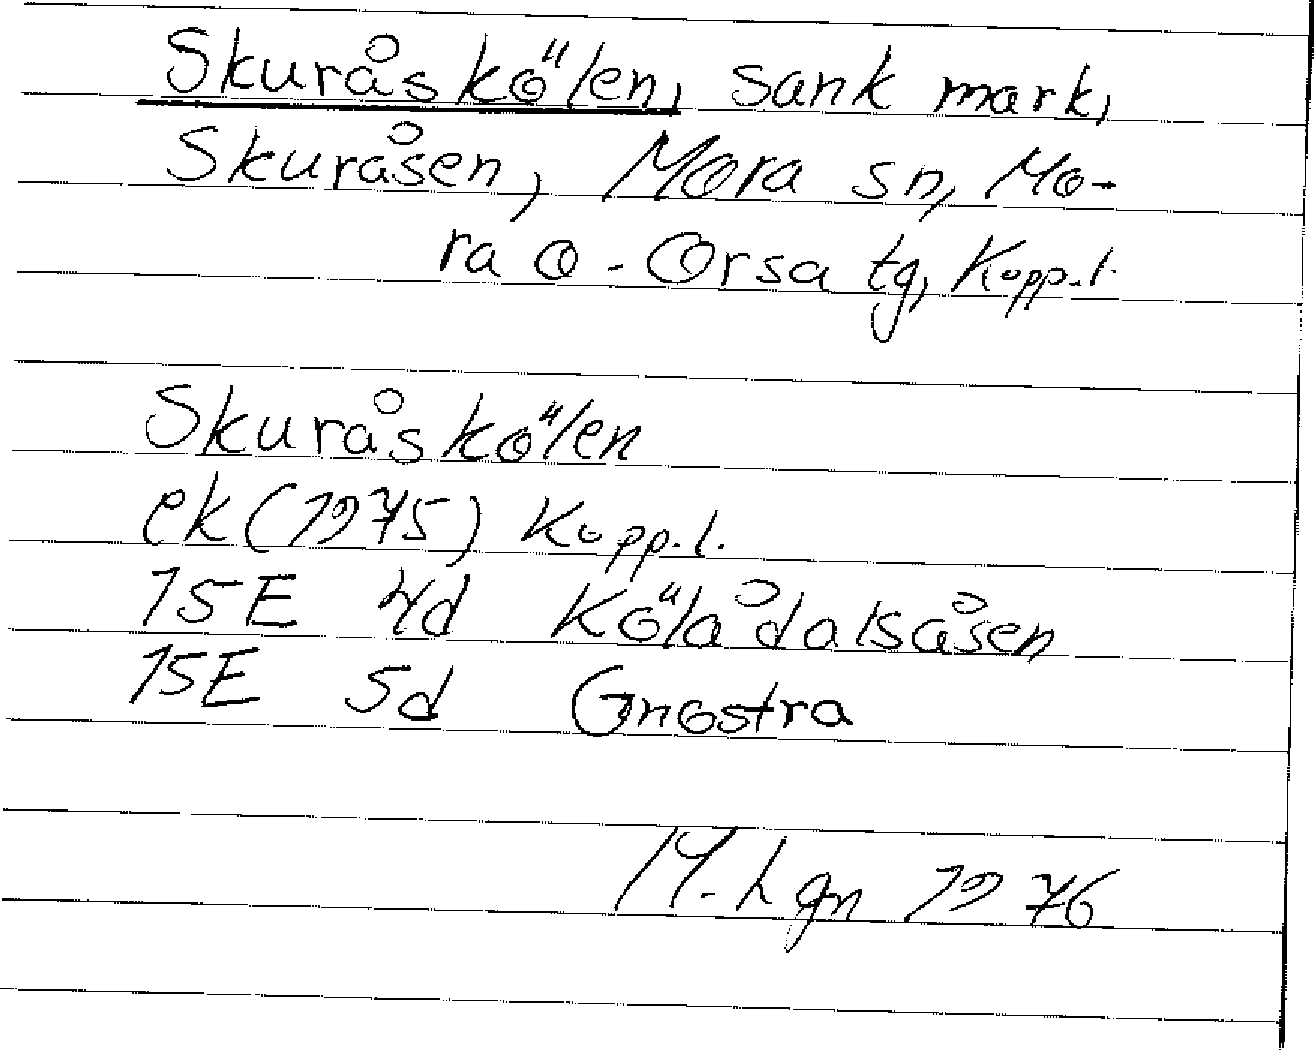 Skuråskölen, sank mark,
Skuråsen, Mora sn, Mo-
ra o. Orsa tg, Kopp.l.
Skuråskölen
ek (1975) Kopp.l.
15E 4d Kölådalsåsen
15E 5d Gnostra
M. Lgn 1976